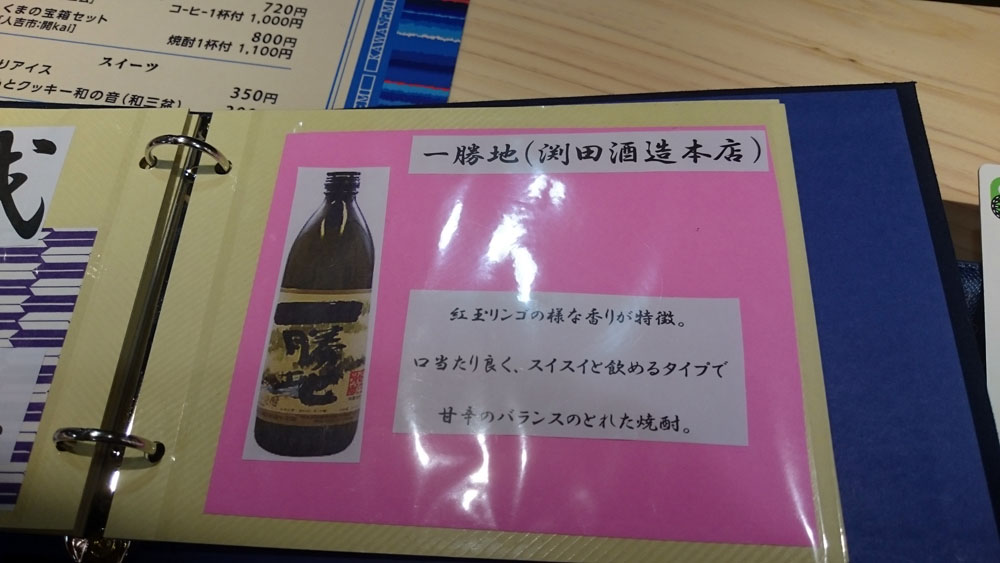 720円
コーヒー1杯付 1,000円
くまの宝箱セット
[人吉市:開kai]
800円
焼酎1杯付 1,100円
スイーツ
アイス
350円
とクッキー和の音(和三盆)
KAWASEMI
一勝地(渕田酒造本店)
一勝地
紅玉リンゴの様な香りが特徴。
口当たり良く、スイスイと飲めるタイプで
甘辛のバランスのとれた焼酎。